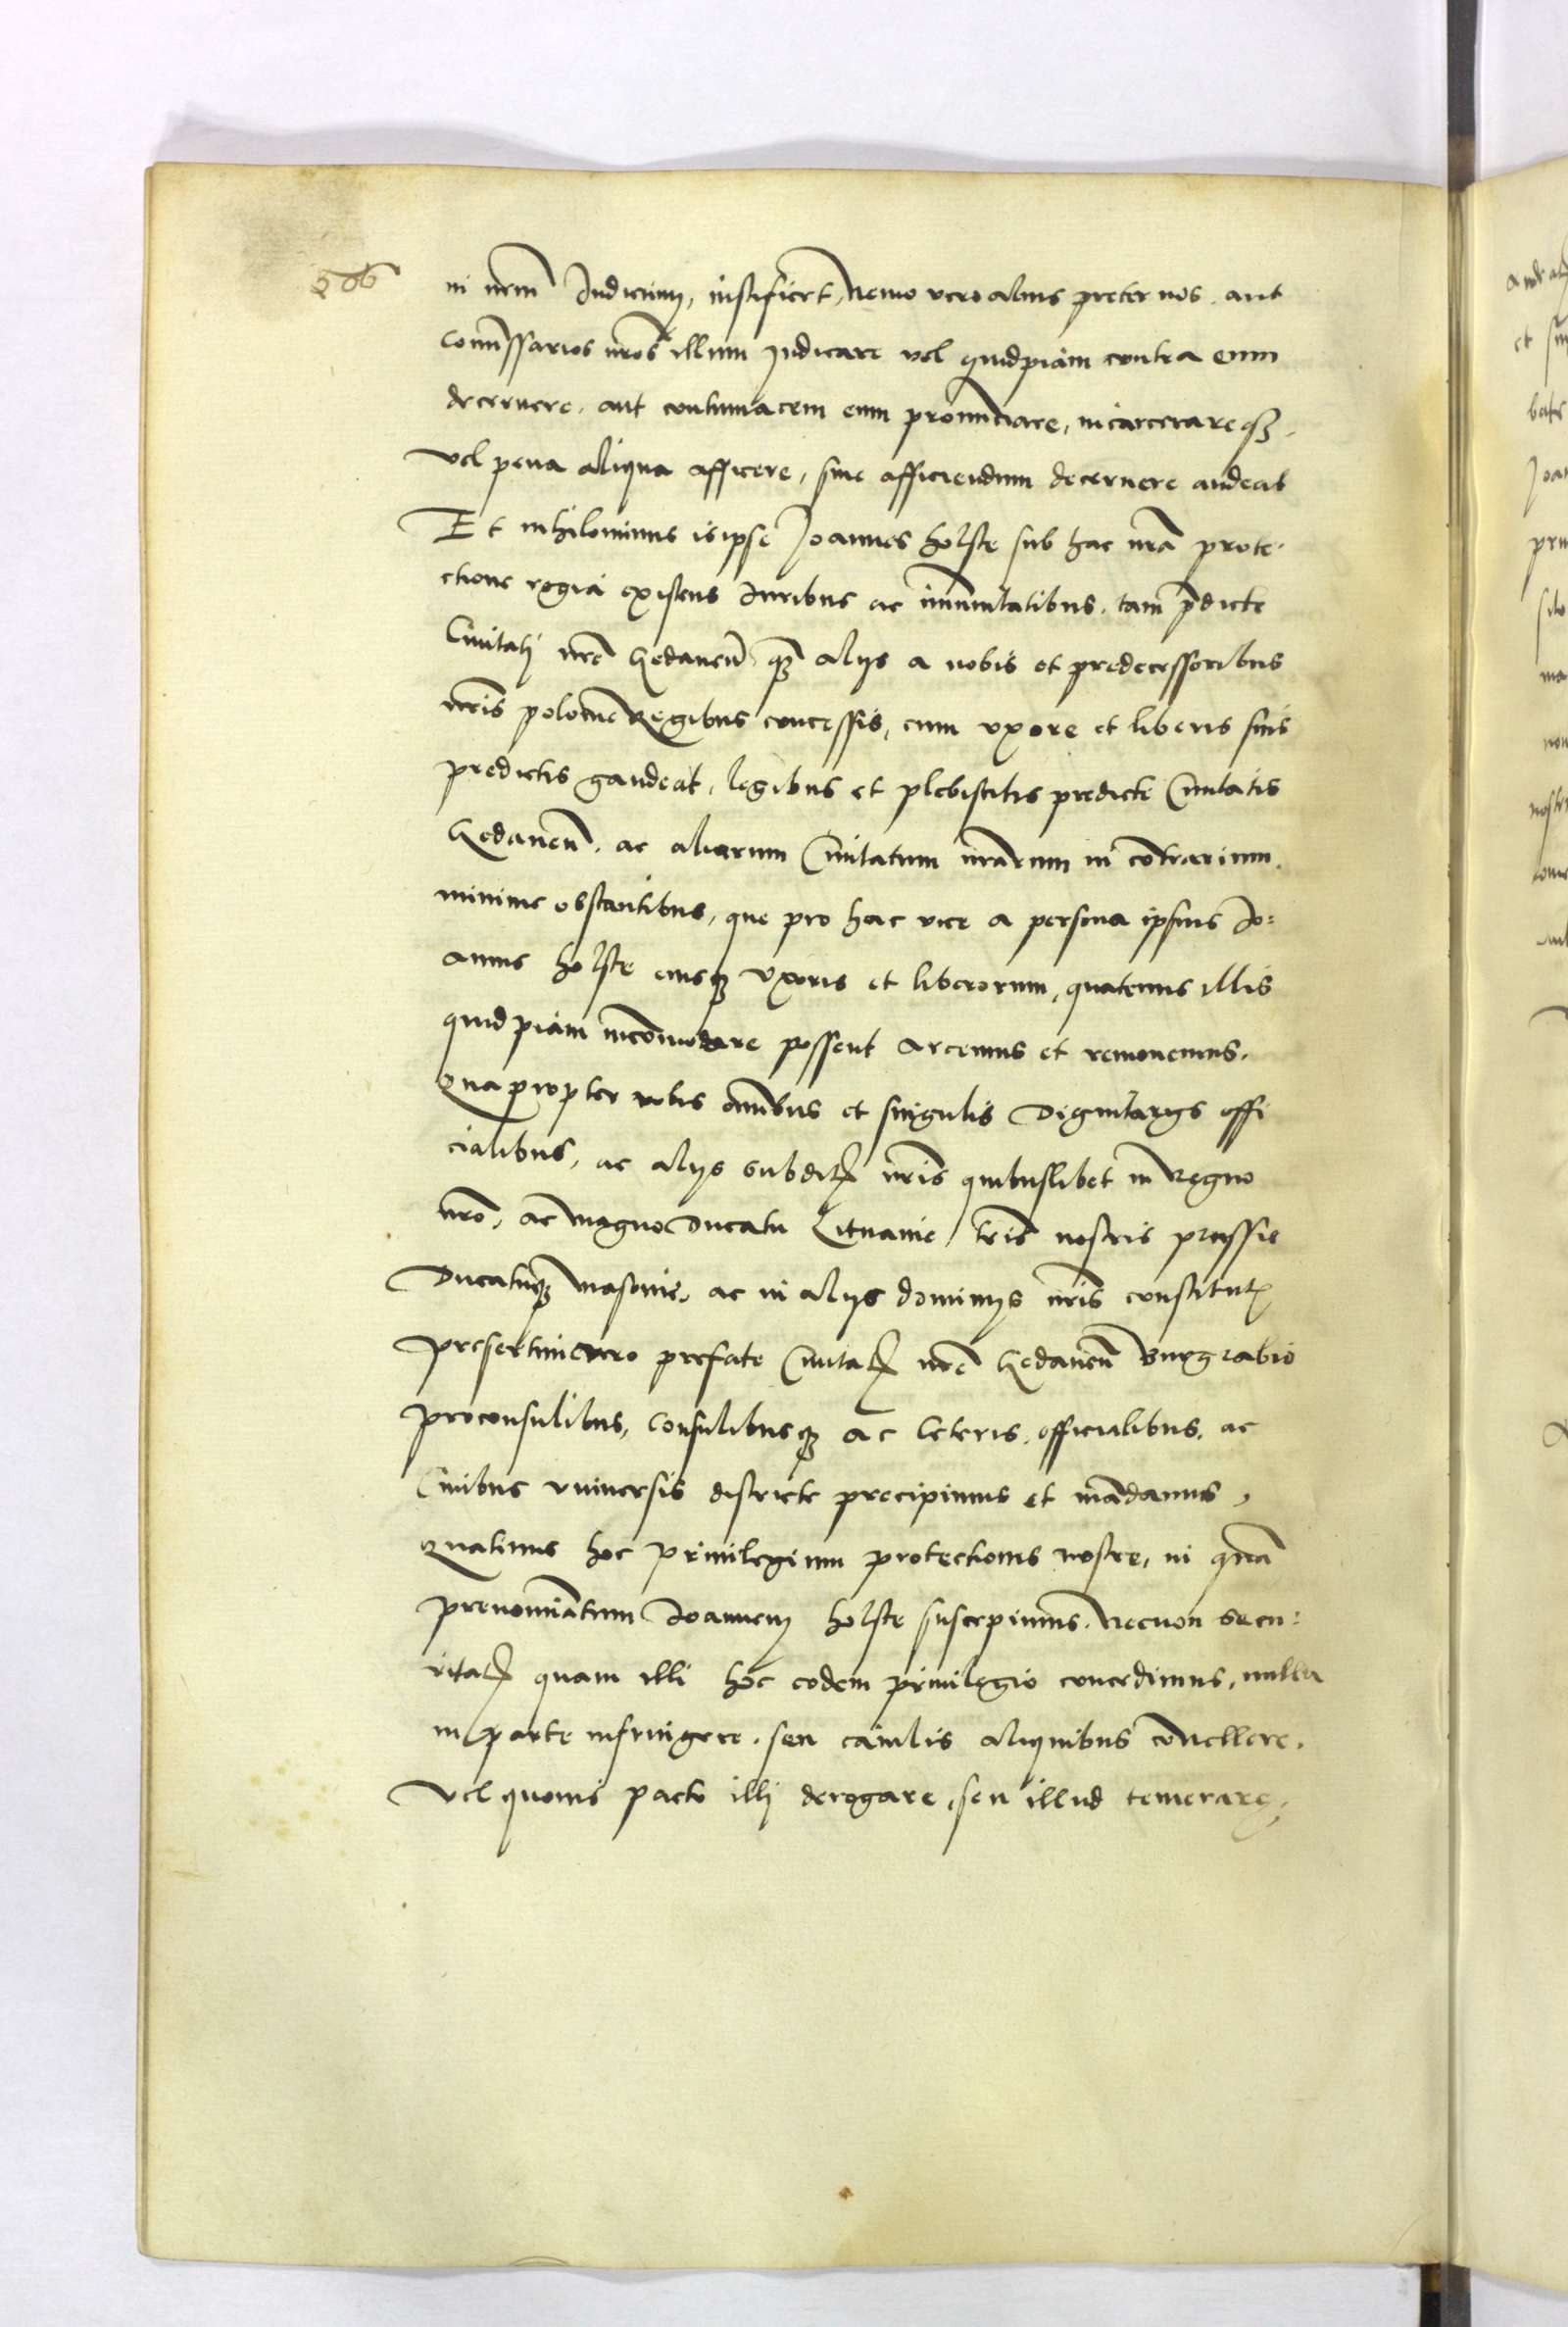 566
in nr̄m Iudicium, iustificet, Nemo vero alius preter nos aut
Com̄issarios nr̄os illum Iudicare vel quidpiam contra eum
decernere, aut contumacem eum pronunciare, incarcerareqꝫ
vel pena aliqua afficere, siue afficiendum decernere audeat
Et nihilominus is ipse Joannes holste sub hac nr̄a prote
ctione regia existens Iuribus ac im̄unitatibus tam p̄dicte
Ciuitatj nr̄e Gedanen̄ qꝫ alijs a nobis et predecessoribus
nr̄is polonie Regibus concessis, cum vxore et liberis suis
predictis gaudeat, legibus et plebiscitis predicte Ciuitatis
Gedanen̄. ac aliarum Ciuitatum nr̄arum in cōtrarium
minime obstantibus, que pro hac vice a persona ipsius Jo:
annis holste eiusqꝫ vxoris et liberorum, quatenus illis
quidpiam incōmodare possent arcemus et remouemus.
Quapropter vobis om̄ibus et singulis Dignitarijs offi
cialibus, ac alijs subditꝭ nr̄is quibuslibet in Regno
nr̄o, ac Magno Ducatu Lituanie, tr̄is nostris prussie
Ducatuqꝫ Masouie, ac in alijs dominijs nr̄is constitutꝭ
presertim vero prefate Ciuitatꝭ nr̄e Gedanen̄ Burgrabio
proconsulibus, Consulibusqꝫ ac Ceteris officialibus, ac
Ciuibus vniuersis districte precipimus et mādamus,
Quatinus hoc priuilegium protectionis nostre, in quā
prenomiātum Joannem holste suscepimus. Necnon secu:
ritatꝭ quam illi hoc eodem priuilegio concedimus, nulla
in parte infringere, seu cauilis aliquibus cōuellere.
Vel quouis pacto illj derogare, seu illud temerare,